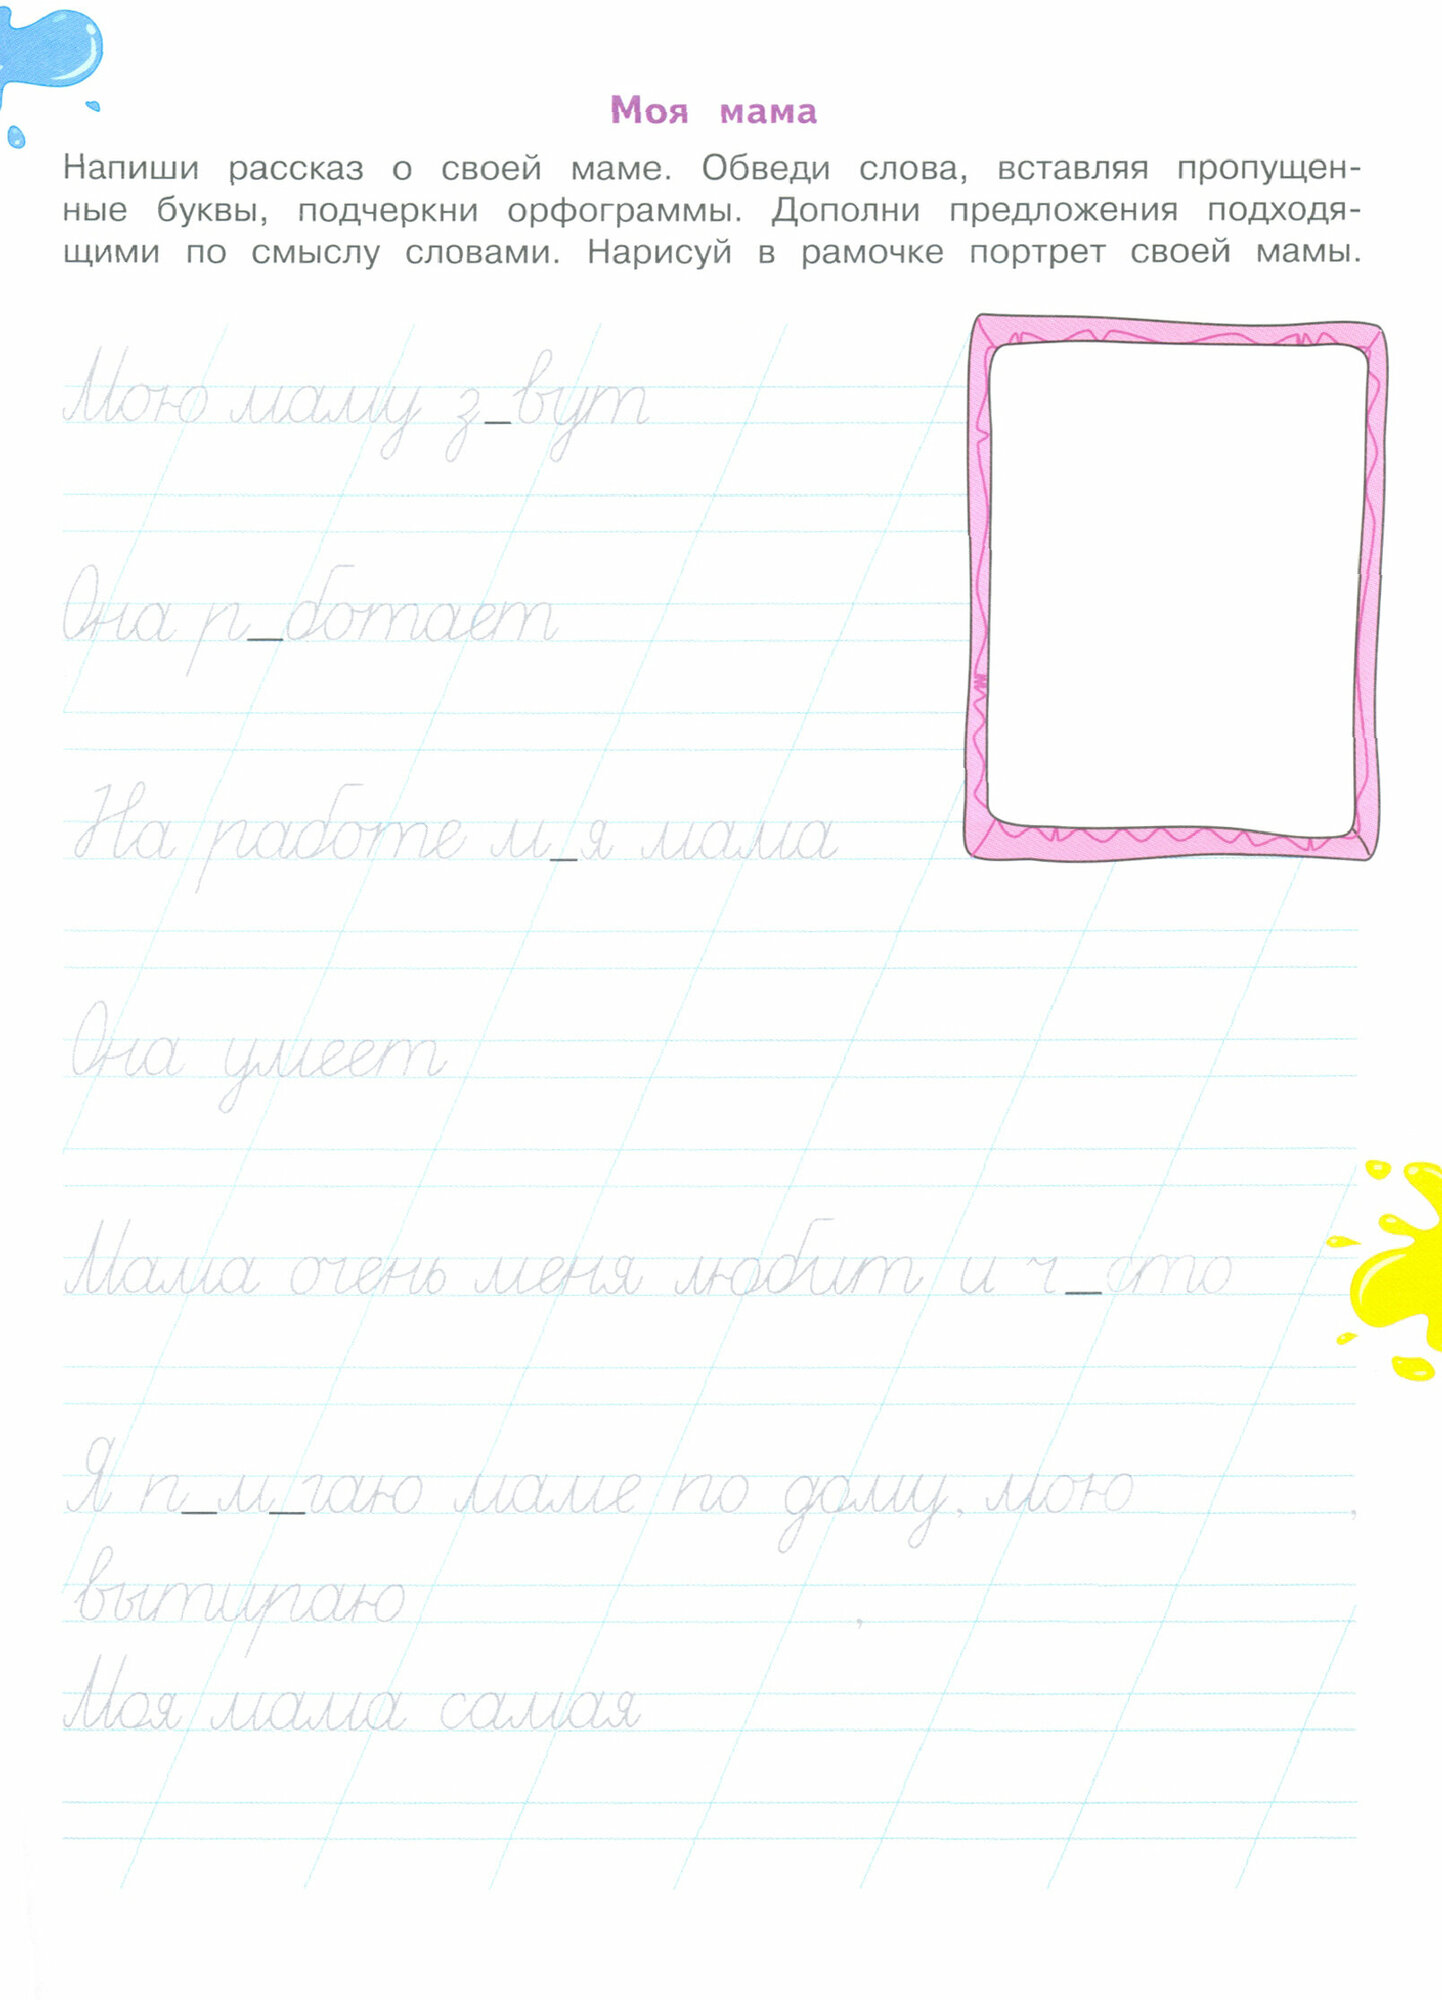 Моя мама
Напиши рассказ о своей маме. Обведи слова, вставляя пропущен-
ные буквы, подчеркни орфограммы. Дополни предложения подходя-
щими по смыслу словами. Нарисуй в рамочке портрет своей мамы.
Мою маму з_вут
Она р_ботает
На работе м_я мама
Она умеет
Мама очень меня любит и ч_сто
Я п_м_гаю маме по дому, мою ,
вытираю ,
Моя мама самая